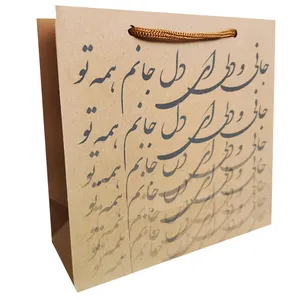 جانی و دلی ای دل جانم همه تو
جانی و دلی ای دل جانم همه تو
جانی و دلی ای دل جانم همه تو
جانی و دلی ای دل جانم همه تو
جانی و دلی ای دل جانم همه تو
جانی و دلی ای دل جانم همه تو